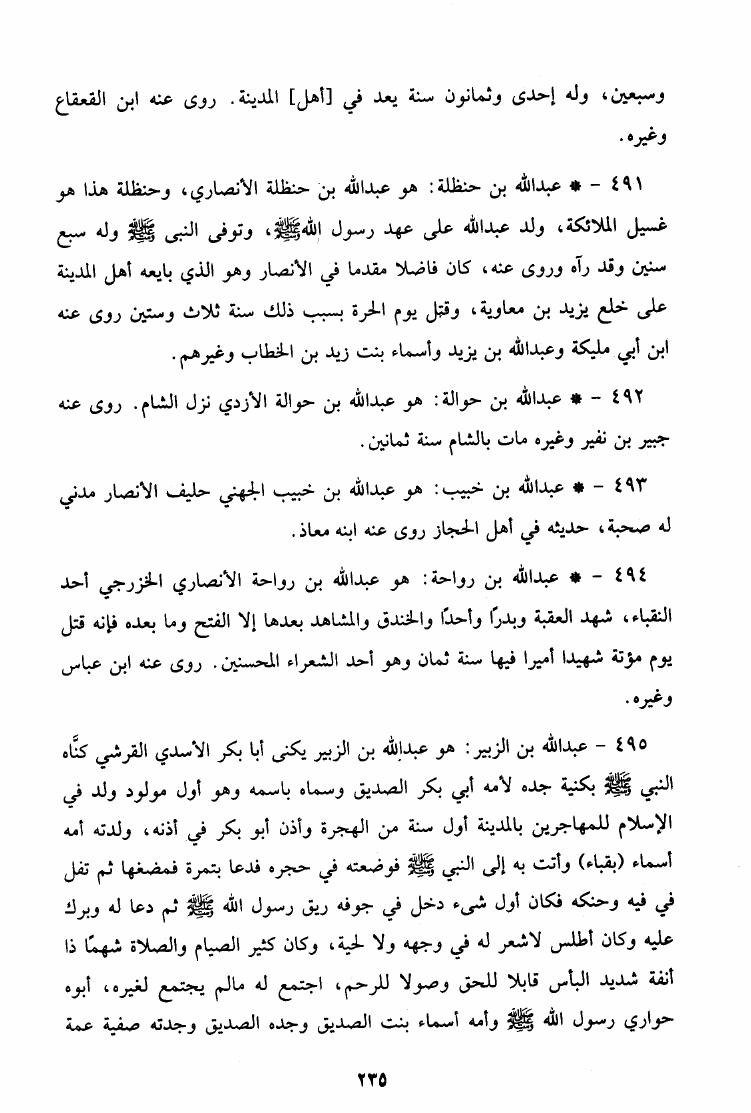 وسبعين، وله إحدى وثمانون سنة يعد في [أهل] المدينة. روى عنه ابن القعقاع
وغيره.
٤٩١ - * عبدالله بن حنظلة: هو عبدالله بن حنظلة الأنصاري، وحنظلة هذا هو
غسيل الملائكة، ولد عبدالله على عهد رسول الله ﷺ، وتوفى النبى ﷺ وله سبع
سنين وقد رآه وروى عنه، كان فاضلا مقدما في الأنصار وهو الذي بايعه أهل المدينة
على خلع يزيد بن معاوية، وقتل يوم الحرة بسبب ذلك سنة ثلاث وستين روى عنه
ابن أبي مليكة وعبدالله بن يزيد وأسماء بنت زيد بن الخطاب وغيرهم.
٤٩٢ - * عبدالله بن حوالة: هو عبدالله بن حوالة الأزدي نزل الشام. روى عنه
جبير بن نفير وغيره مات بالشام سنة ثمانين.
٤٩٣ - * عبدالله بن خبيب: هو عبدالله بن خبيب الجهني حليف الأنصار مدني
له صحبة، حديثه في أهل الحجاز روى عنه ابنه معاذ.
٤٩٤ - * عبدالله بن رواحة: هو عبدالله بن رواحة الأنصاري الخزرجي أحد
النقباء، شهد العقبة وبدرًا وأحدًا والخندق والمشاهد بعدها إلا الفتح وما بعده فإنه قتل
يوم مؤتة شهيدا أميرا فيها سنة ثمان وهو أحد الشعراء المحسنين. روى عنه ابن عباس
وغيره.
٤٩٥ - عبدالله بن الزبير: هو عبدالله بن الزبير يكنى أبا بكر الأسدي القرشي كنَّاه
النبي ﷺ بكنية جده لأمه أبي بكر الصديق وسماه باسمه وهو أول مولود ولد في
الإسلام للمهاجرين بالمدينة أول سنة من الهجرة وأذن أبو بكر في أذنه، ولدته أمه
أسماء (بقباء) وأتت به إلى النبي ﷺ فوضعته في حجره فدعا بتمرة فمضغها ثم تفل
في فيه وحنكه فكان أول شىء دخل في جوفه ريق رسول الله ﷺ ثم دعا له وبرك
عليه وكان أطلس لاشعر له في وجهه ولا لحية، وكان كثير الصيام والصلاة شهمًا ذا
أنفة شديد البأس قابلا للحق وصولا للرحم، اجتمع له مالم يجتمع لغيره، أبوه
حواري رسول الله ﷺ وأمه أسماء بنت الصديق وجده الصديق وجدته صفية عمة
٢٣٥